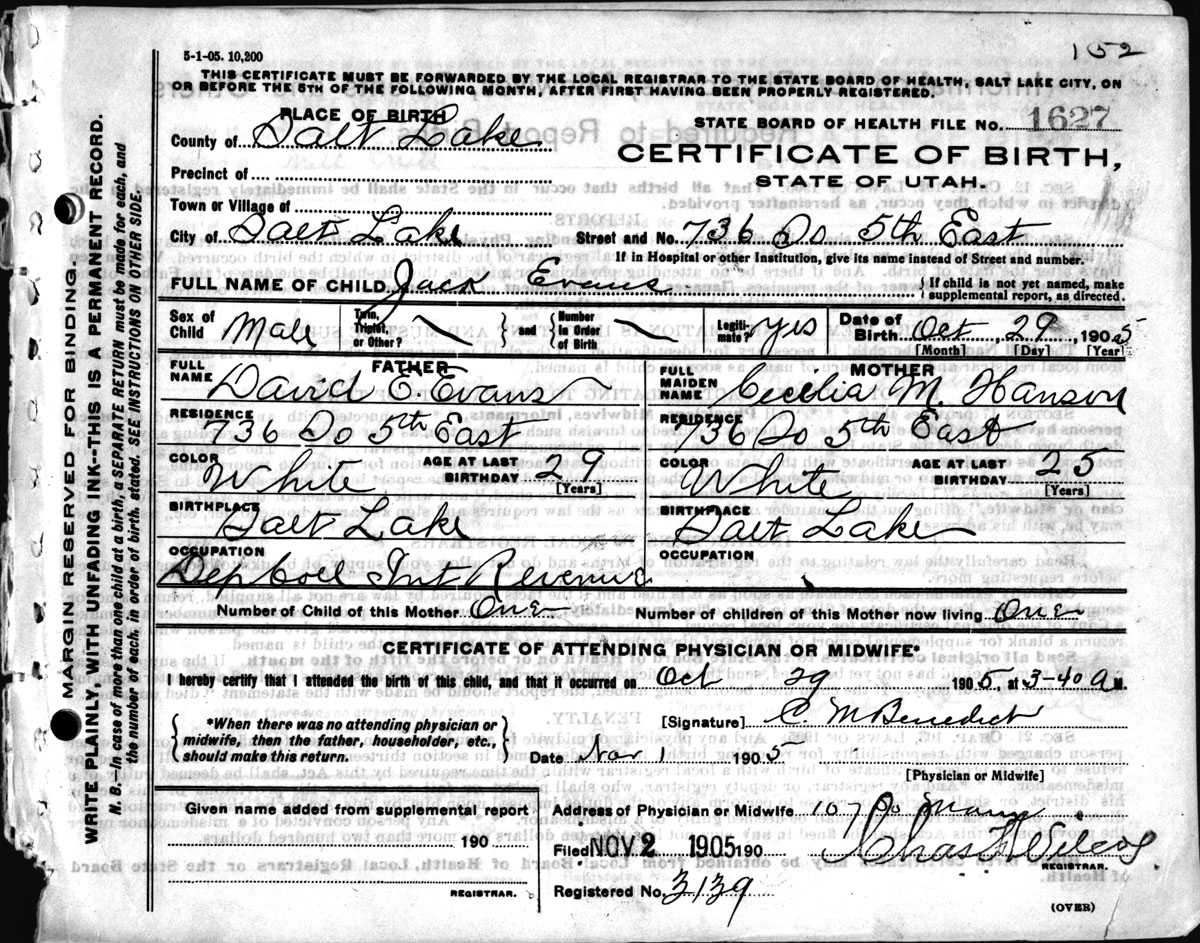 5-1-05. 10,200
152
THIS CERTIFICATE MUST BE FORWARDED BY THE LOCAL REGISTRAR TO THE STATE BOARD OF HEALTH, SALT LAKE CITY, ON
OR BEFORE THE 5TH OF THE FOLLOWING MONTH, AFTER FIRST HAVING BEEN PROPERLY REGISTERED.
PLACE OF BIRTH
STATE BOARD OF HEALTH FILE No. 1627
County of Salt Lake
CERTIFICATE OF BIRTH,
Precinct of
STATE OF UTAH.
Town or Village of
City of Salt Lake Street and No. 736 So 5th East
If in Hospital or other Institution, give its name instead of Street and number.
FULL NAME OF CHILD Jack Evans { If child is not yet named, make
supplemental report, as directed.
Sex of Child Male Twin, Triplet, or Other? } and { Number in Order of Birth Legiti-mate? yes Date of Birth Oct 29 1905
[Month] [Day] [Year]
FATHER
FULL NAME David E. Evans
RESIDENCE
736 So 5th East
COLOR White AGE AT LAST BIRTHDAY 29
[Years]
BIRTHPLACE
Salt Lake
OCCUPATION
Dep Coll Int Revenue
MOTHER
FULL MAIDEN NAME Cecelia M. Hanson
RESIDENCE
736 So 5th East
COLOR White AGE AT LAST BIRTHDAY 25
[Years]
BIRTHPLACE
Salt Lake
OCCUPATION
Number of Child of this Mother One Number of children of this Mother now living One
CERTIFICATE OF ATTENDING PHYSICIAN OR MIDWIFE*
I hereby certify that I attended the birth of this child, and that it occurred on Oct 29 1905, at 3-40 a M.
{ *When there was no attending physician or
midwife, then the father, householder, etc.,
should make this return. }
[Signature] C. M Benedict
Date Nov 1 1905
[Physician or Midwife]
Given name added from supplemental report
190
REGISTRAR.
Address of Physician or Midwife 107 So Main
Filed NOV 2 1905 190 Chas
REGISTRAR.
Registered No. 3139
(OVER)
MARGIN RESERVED FOR BINDING
WRITE PLAINLY, WITH UNFADING INK--THIS IS A PERMANENT RECORD.
N. B.--In case of more than one child at a birth, a SEPARATE RETURN must be made for each, and
the number of each, in order of birth, stated. SEE INSTRUCTIONS ON OTHER SIDE.